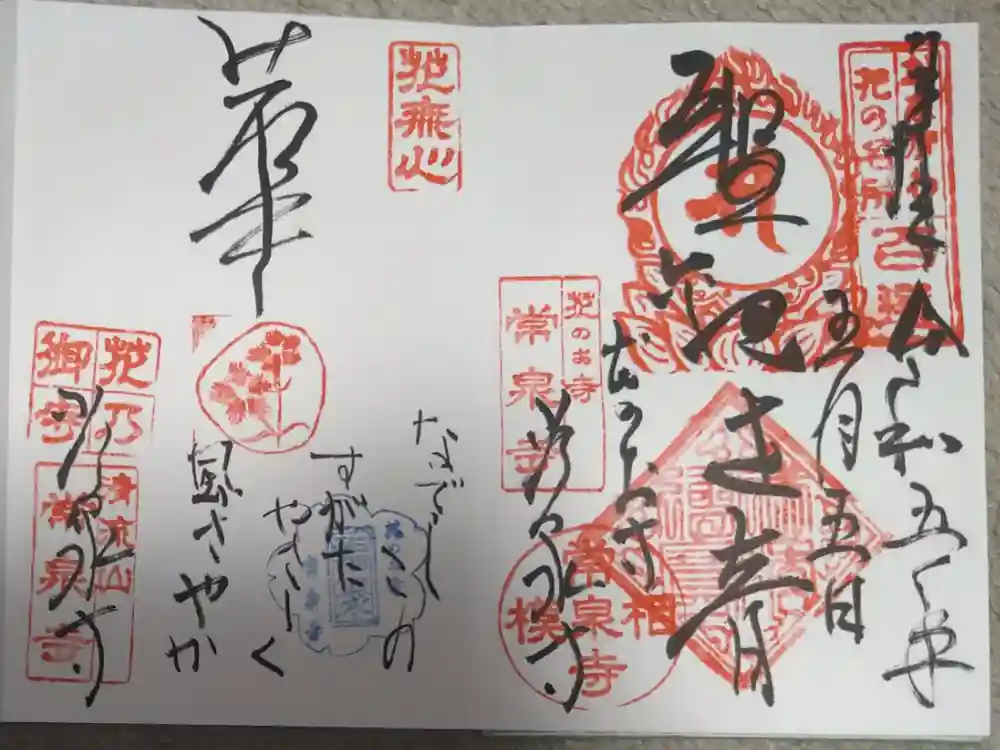 花の名所百選
令和五年
五月五日
聖観世音
花のお寺
常泉寺
花のお寺
常泉寺
相模
常泉寺
花無心
華
なでしこの
すがた
やさしく
風さやか
花乃
御寺
清流山
常泉寺
常泉寺